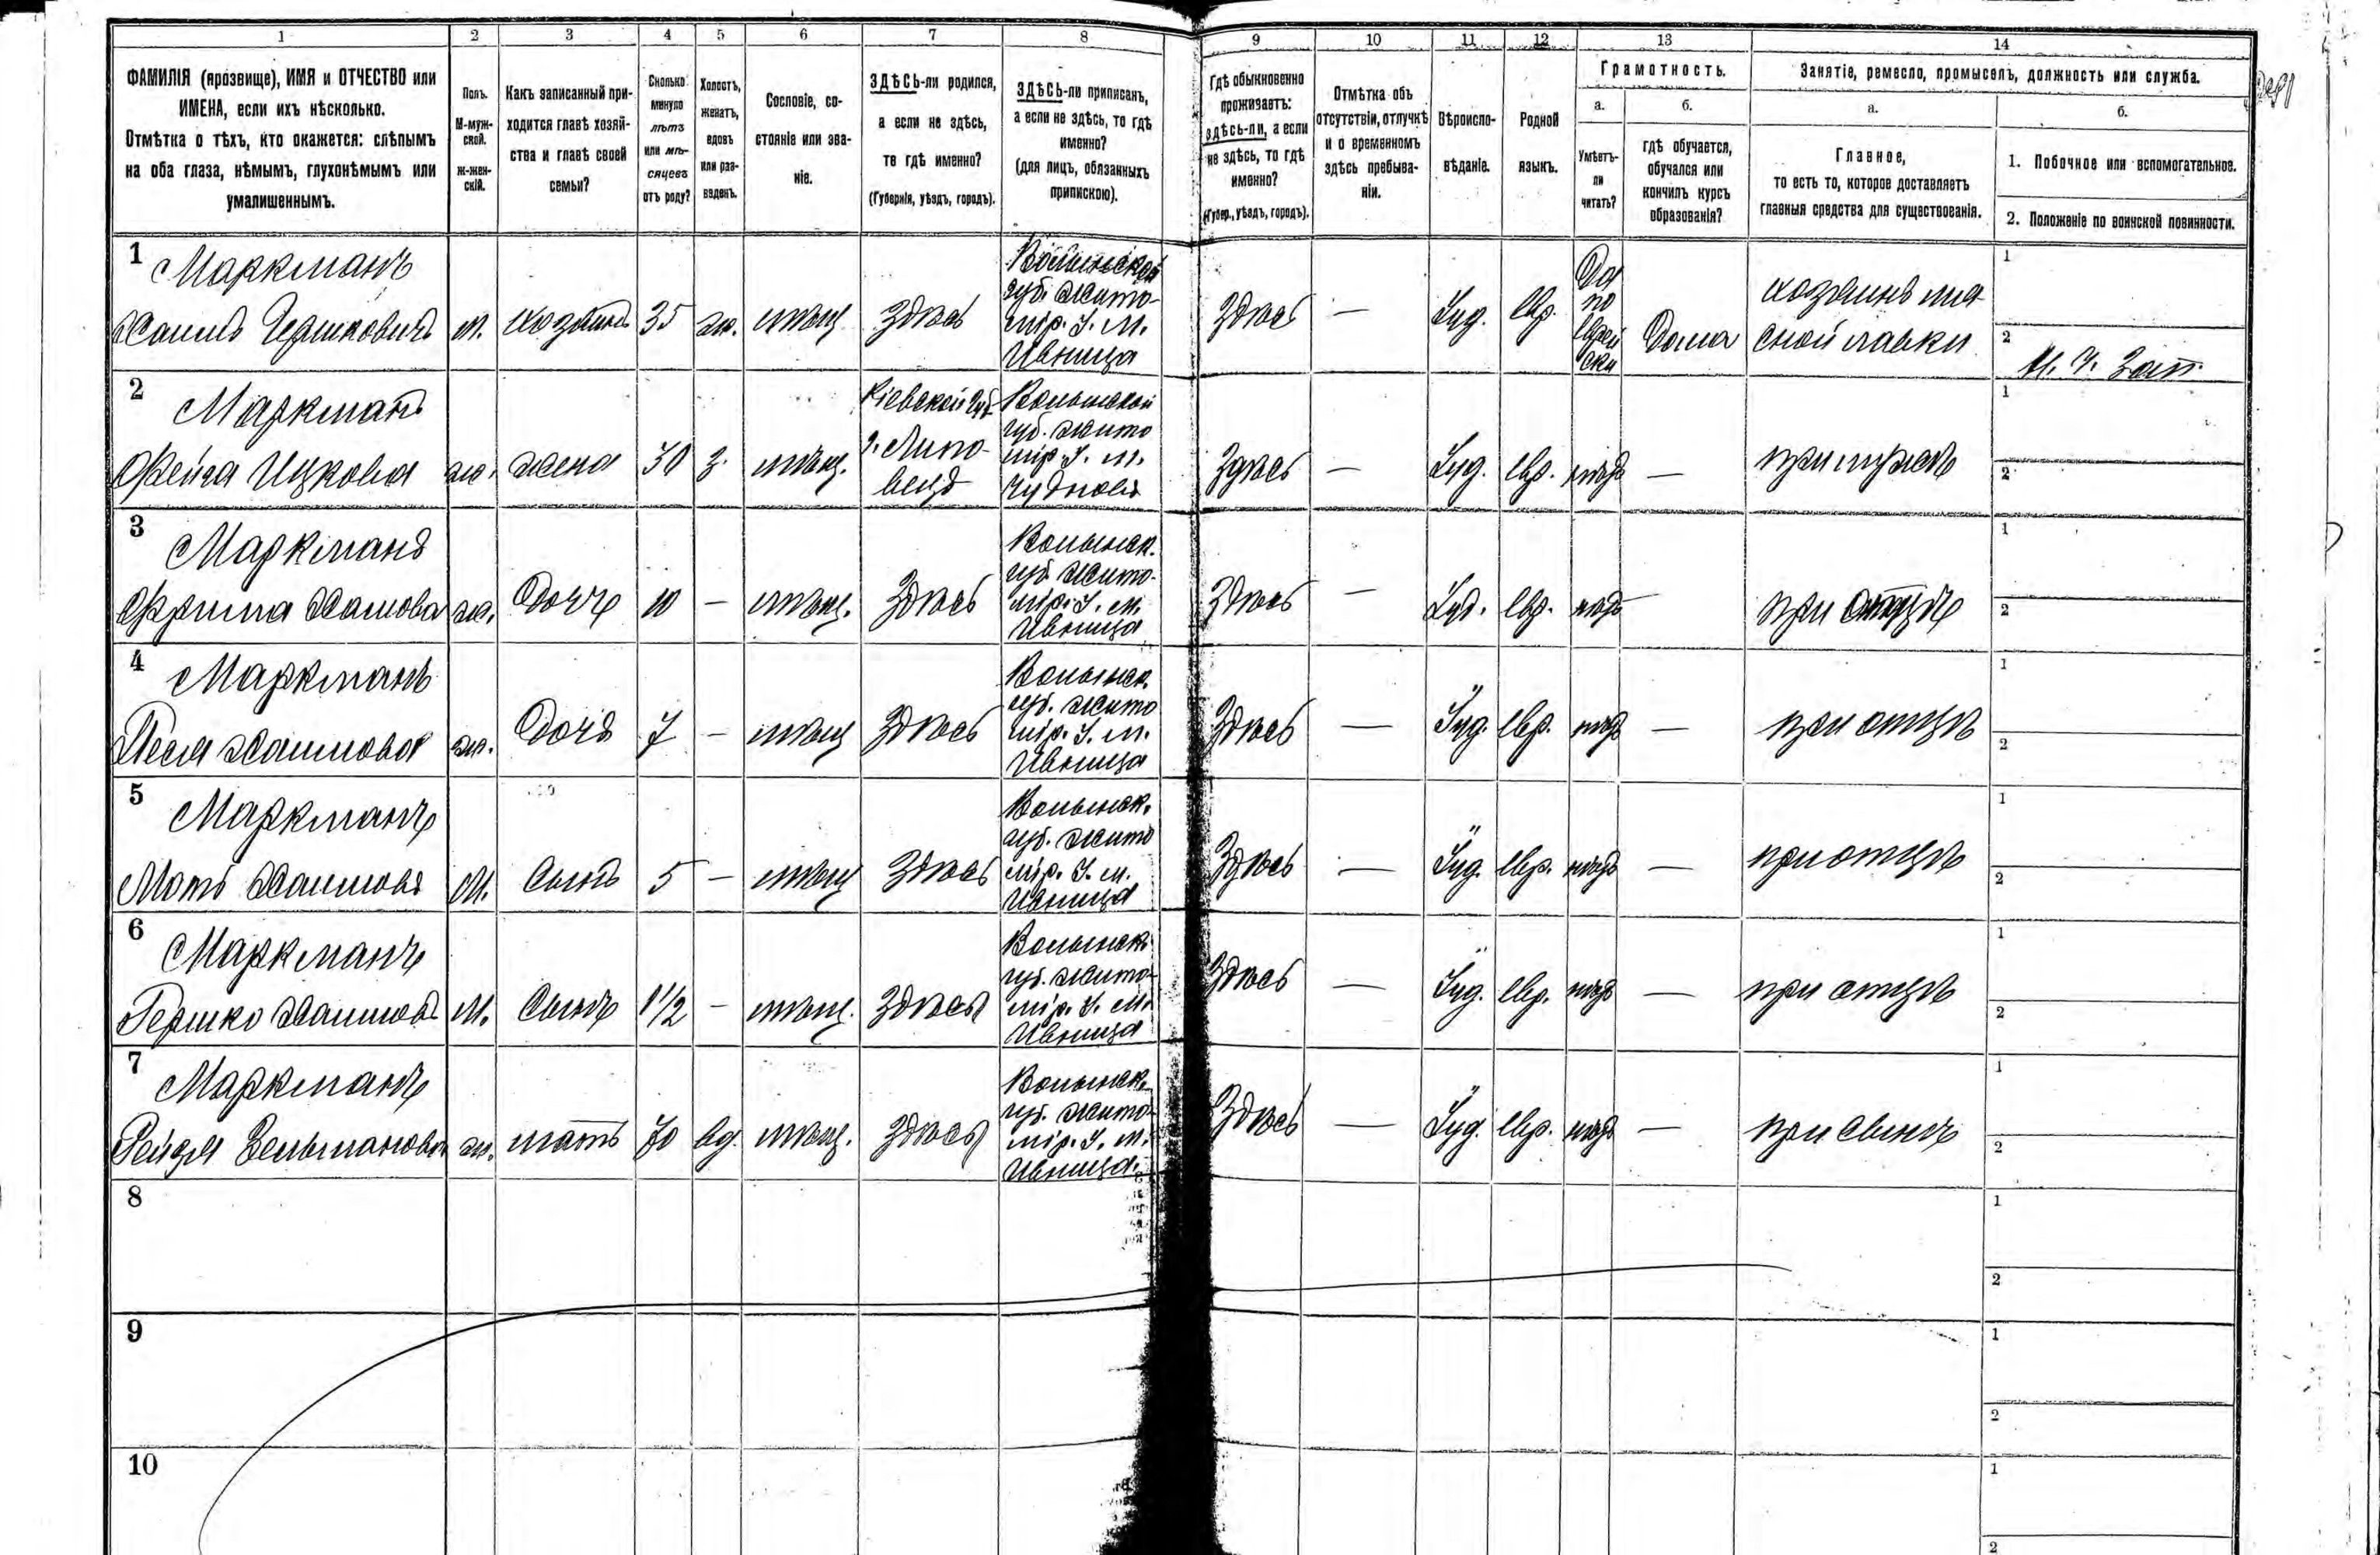 1
2
3
4
5
6
7
8
9
10
11
12
13
14
ФАМИЛІЯ (прозвище), ИМЯ и ОТЧЕСТВО или
ИМЕНА, если ихъ нѣсколько.
Отмѣтка о тѣхъ, кто окажется: слѣпымъ
на оба глаза, нѣмымъ, глухонѣмымъ или
умалишеннымъ.
Полъ.
М-муж-
ской.
Ж-жен-
скій.
Какъ записанный при-
ходится главѣ хозяй-
ства и главѣ своей
семьи?
Сколько
минуло
лѣтъ
или мѣ-
сяцевъ
отъ роду?
Холостъ,
женатъ,
вдовъ
или раз-
веденъ.
Сословіе, со-
стояніе или зва-
ніе.
ЗДѢСЬ-ли родился,
а если не здѣсь,
то гдѣ именно?
(Губернія, уѣздъ, городъ).
ЗДѢСЬ-ли приписанъ,
а если не здѣсь, то гдѣ
именно?
(для лицъ, обязанныхъ
припискою).
Гдѣ обыкновенно
проживаетъ:
здѣсь-ли, а если
не здѣсь, то гдѣ
именно?
(Губер., уѣздъ, городъ).
Отмѣтка объ
отсутствіи, отлучкѣ
и о временномъ
здѣсь пребыва-
ніи.
Вѣроиспо-
вѣданіе.
Родной
языкъ.
Грамотность.
а.
Умѣетъ-
ли
читать?
б.
гдѣ обучается,
обучался или
кончилъ курсъ
образованія?
Занятіе, ремесло, промыселъ, должность или служба.
а.
Главное,
то есть то, которое доставляетъ
главныя средства для существованія.
б.
1. Побочное или вспомогательное.
2. Положеніе по воинской повинности.
1
Маркманъ
Хаимъ Гершковичъ
м.
хозяинъ
35
ж.
мѣщ
здѣсь
Волынской
губ. Жито-
мір. У. М.
Ивница
Здѣсь
—
Іуд.
евр.
Да
по
еврей
ски
Дома
хозяинъ мя-
сной лавки
1
2
И. У. Зап.
2
Маркманъ
Фейга Ицкова
ж.
жена
30
з.
мѣщ.
Кіевской губ
г. Липо-
вецъ
Волынской
губ. Жито
мір У. М.
Чудновъ
Здѣсь
—
Іуд.
евр.
нѣтъ
—
при мужѣ
1
2
3
Маркманъ
Фрима Хаимова
ж.
Дочь
10
—
мѣщ.
Здѣсь
Волынск.
губ Жито-
мір. У. М.
Ивница
Здѣсь
—
Іуд.
евр.
нѣтъ
—
при отцѣ
1
2
4
Маркманъ
Песя Хаимова
ж.
Дочь
7
—
мѣщ
Здѣсь
Волынск.
губ. Жито
мір. У. М.
Ивница
Здѣсь
—
Іуд.
евр.
нѣтъ
—
при отцѣ
1
2
5
Маркманъ
Моть Хаимовъ
М.
Сынъ
5
—
мѣщ
Здѣсь
Волынск.
губ. Жито
мір. У. М.
Ивница
Здѣсь
—
Іуд.
евр.
нѣтъ
—
при отцѣ
1
2
6
Маркманъ
Гершко Хаимовъ
М.
Сынъ
1 1/2
—
мѣщ.
Здѣсь
Волынск.
губ. Жито-
мір. У. М.
Ивница
Здѣсь
—
Іуд.
евр.
нѣтъ
—
при отцѣ
1
2
7
Маркманъ
Рейзя Зельмановна
ж.
мать
70
вд.
мѣщ.
Здѣсь
Волынск.
губ. Жито-
мір. У. М.
Ивница.
Здѣсь
—
Іуд.
евр.
нѣтъ
—
при сынѣ
1
2
8
1
2
9
1
2
10
1
2